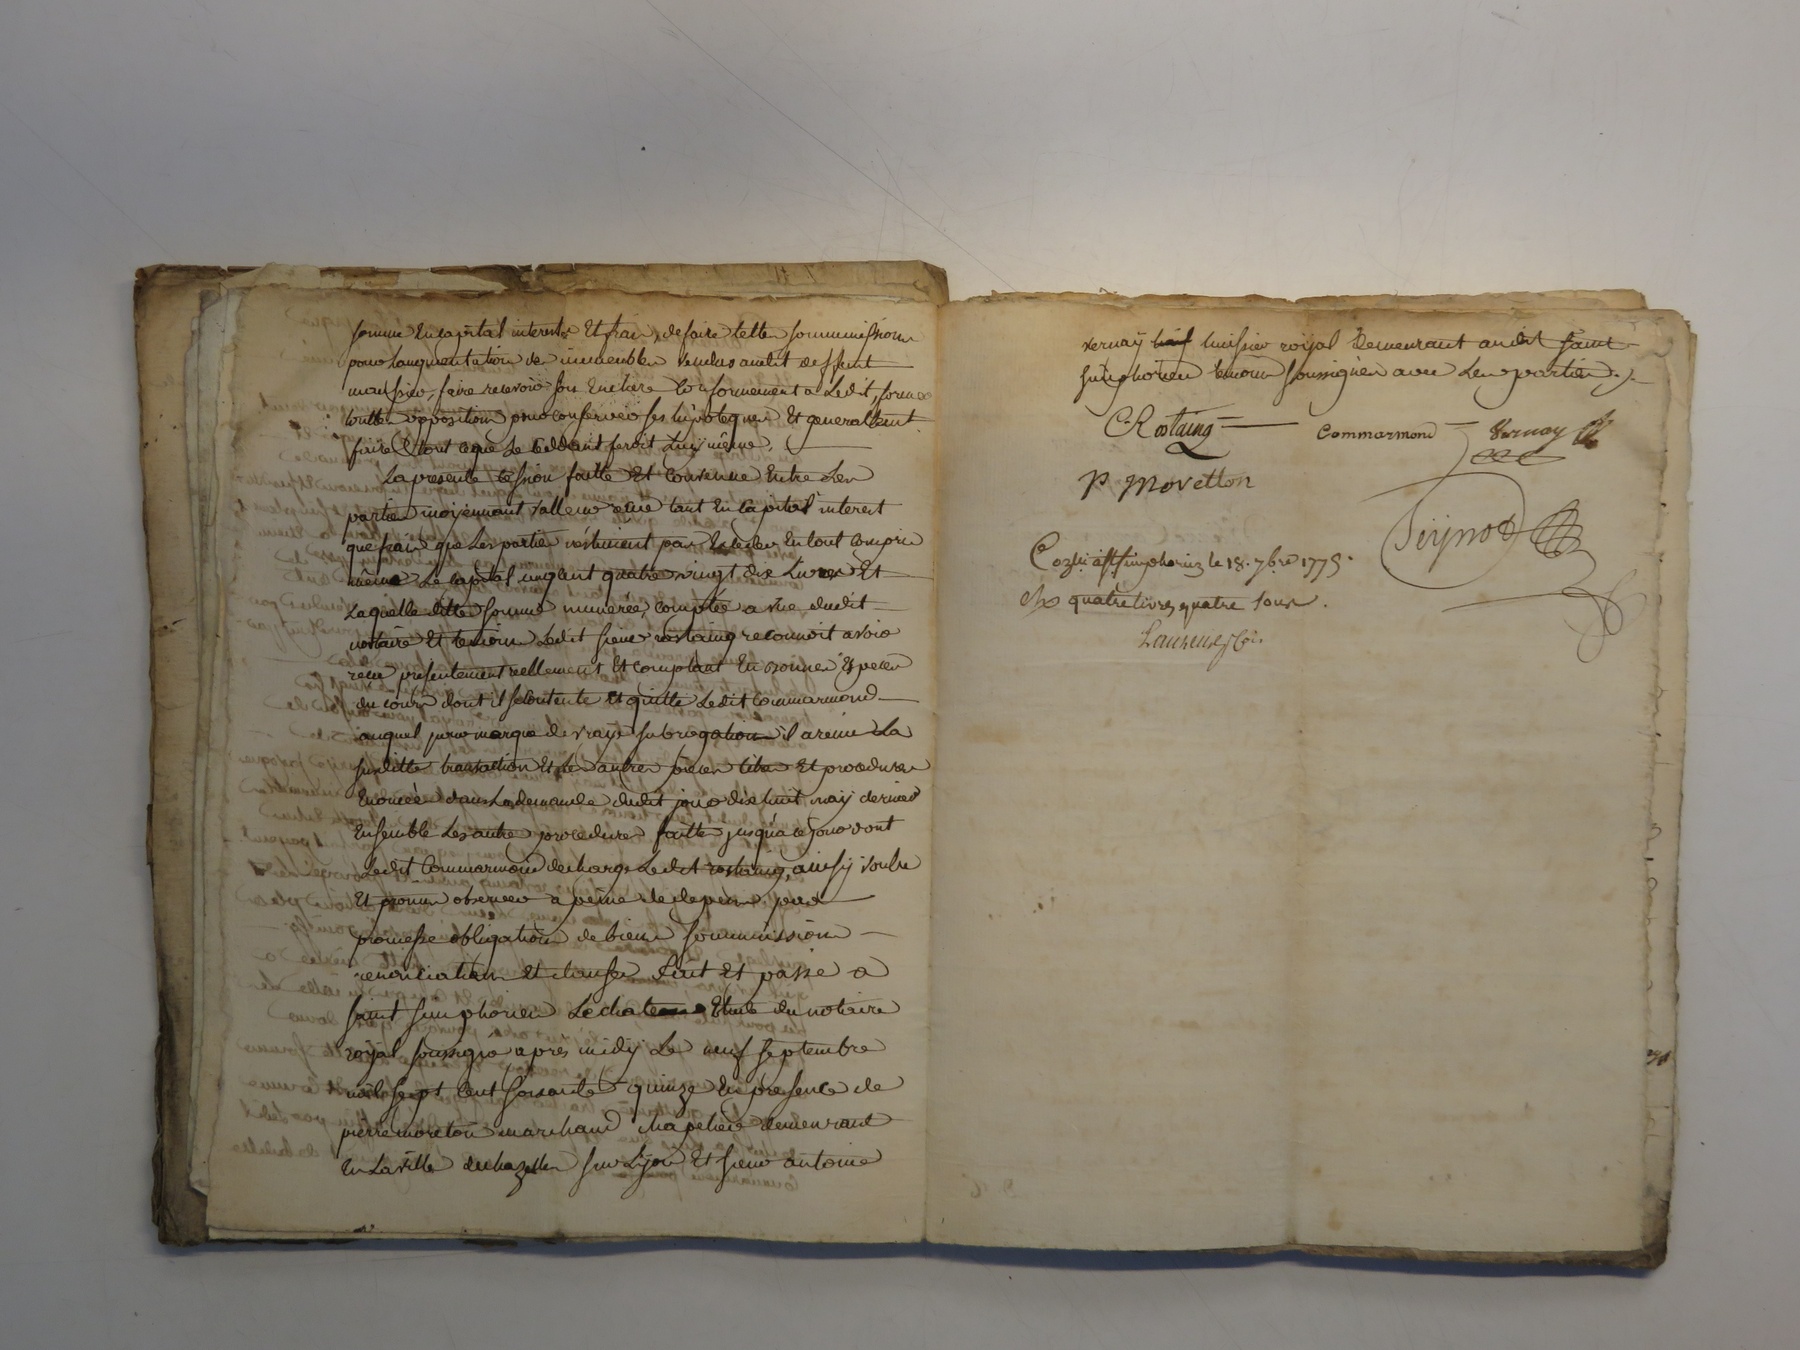 somme En capital interests Et frais, de faire telle soummission
pour Laugmentation de immeubles vendus audit deffunt
maussier, faire recevoir son Enchere Conformement a Ledit, former
toutte opposition pour conserver ses hipoteques Et generallement
faire tout ceque Le Ceddant feroit Luy même.
La presente Cession faitte Et Convenue Entre Les
parties moyennant valleur reçue tant En Capital interest
que frais que Les partie En tout Compris
même Le Capital un Cent quatre vingt dix Livres Et
Laquelle ditte somme numerée, comptée a vüe dudit
nottaire Et temoins Ledit sieur rostaing reconnoit avoir
reçue presentement reellement Et Comptant En bonnes Especes
du cours dont il se Contente Et quitte Ledit Commarmond
auquel pour marque de vraye subrogation il a remi La
susditte transaction Et Les autres pieces titres Et procedures
Enoncée dans La demande dudit jour dixhuit may dernier
Ensemble Les autre procedures faitte jusqu'a ce jour dont
Ledit Commarmond decharge Ledit rostaing, ainsy voulu
Et promis observer a peine de depens par
promesse obligation de biens soummission
renonciation Et Clauses fait Et passé a
saint simphorien Le chateau Etude du notaire
royal soussigné après midy Le neuf septembre
mil sept Cent soixante quinze En presence de
pierre moreton marchand chapelier demeurant
En La ville de chazelles sur Lyon Et sieur antoine
vernay huissier royal demeurant audit saint
simphorien temoins soussignés avec Les parties.
C. Rostaing Commarmond Vernay
P Moretton
Peynot
Con.lé à St simphorien le 18. 7bre 1775.
quatre livres quatre sous.